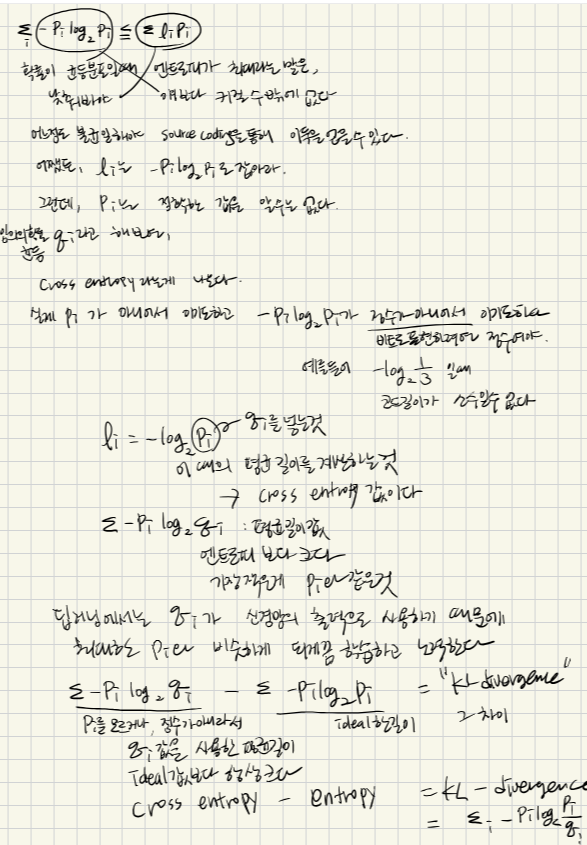 Σ_i -P_i log₂ P_i ≤ Σ l_i P_i
확률이 균등분포일때 엔트로피가 최대라는 말은,
낮춰봐야 얘보다 커질수밖에 없다
어느정도 불균일해야 source coding을 통해 이득을 얻을수있다.
어쨌든, l_i는 -P_i log₂ P_i로 잡아라.
그런데, P_i는 정확하는 값을 알수는 없다.
임의의확률 q_i라고 해보면,
균등
Cross entropy라는게 나온다.
실제 P_i가 아니어서 이미도하고 -P_i log₂ P_i가 정수가아니어서 이미도하고
비트로 표현하려면 정수여야.
예를들어 -log₂ 1/3 일때
코드길이가 소수일수 없다
l_i = -log₂ P_i q_i를 넣는것
이 때의 평균 길이를 계산하는것
→ cross entropy 값이다
Σ -P_i log₂ q_i : 평균길이값
엔트로피 보다 크다
가장 작은게 P_i와 같은것
딥러닝에서는 q_i가 신경망의 출력으로 사용하기 때문에
최대한 P_i와 비슷하게 되게끔 학습하고 노력한다
Σ -P_i log₂ q_i - Σ -P_i log₂ P_i = "KL-divergence"
P_i를 모르거나, 정수가아니라서 Ideal한길이 그 차이
q_i값을 사용한 평균길이
Ideal값보다 항상크다
Cross entropy - Entropy = KL-divergence
= Σ_i -P_i log P_i/q_i